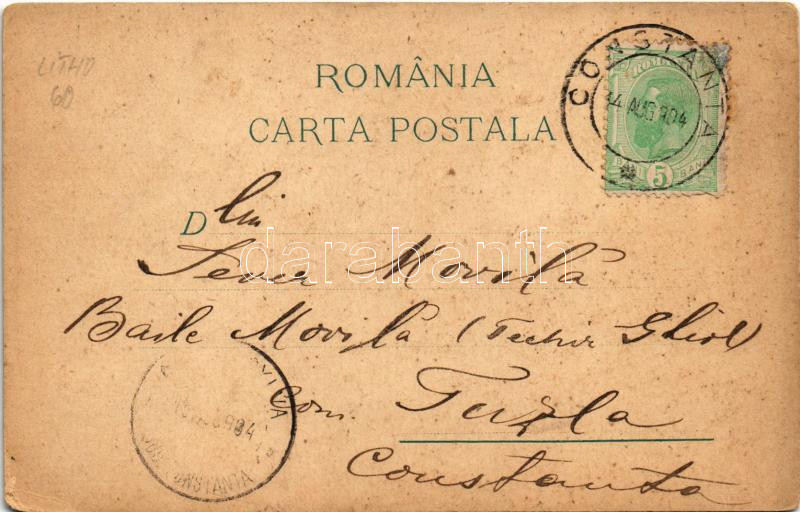 LITHO
60
ROMÂNIA
CARTA POSTALA
CONSTANTA
AUG 904
ROMANIA
BANI 5 BANI
D lui
Movilă
Baile Movilă (Techir Ghiol)
com. Tuzla
Constanta
904
CONSTANTA
darabanth